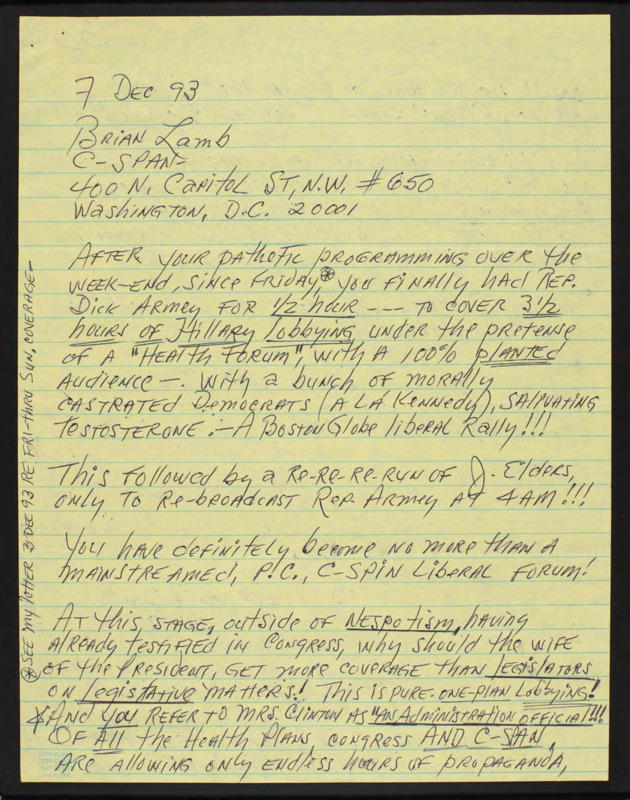 7 DEC 93
BRIAN Lamb
C-SPAN-
400 N. CAPITOL ST, N.W. #650
WASHINGTON, D.C. 20001
AFTER YOUR PATHETIC PROGRAMMING OVER the
WEEK-END, SINCE FRIDAY,⊛ YOU FINALLY HAD REP.
DICK ARMEY FOR 1/2 hour --- TO COVER 3 1/2
hours OF Hillary Lobbying UNDER the pretense
OF A "HEALTH FORUM", WITH A 100% planted
AUDIENCE —. WITH A BUNCH OF MORALLY
CASTRATED DEMOCRATS (A LÁ KENNEDY), SALIVATING
TESTOSTERONE :- A BOSTON Globe liberal Rally!!!
This Followed by a RE-RE-RE-RUN OF J. Elders,
only TO RE-broadcast REP. ARMEY AT 4AM!!!
YOU have definitely become NO more than A
MAINSTREAMED, P.C., C-SPIN LIBERAL FORUM!
AT this STAGE, outside OF NESPOTISM, having
Already testified in Congress, why should the WIFE
OF the PRESIDENT, GET MORE COVERAGE than LEGISLATORS
ON Legislative MATTERS! This IS PURE-ONE-PLAN Lobbying!
*AND YOU REFER TO MRS. CLINTON AS "AN ADMINISTRATION OFFICIAL"!!!
OF All the Health Plans, congress AND C-SPAN,
ARE Allowing only ENDLESS hours OF PROPAGANDA,
⊛SEE my letter 3 DEC 93 RE FRI-thru SUN, COVERAGE-